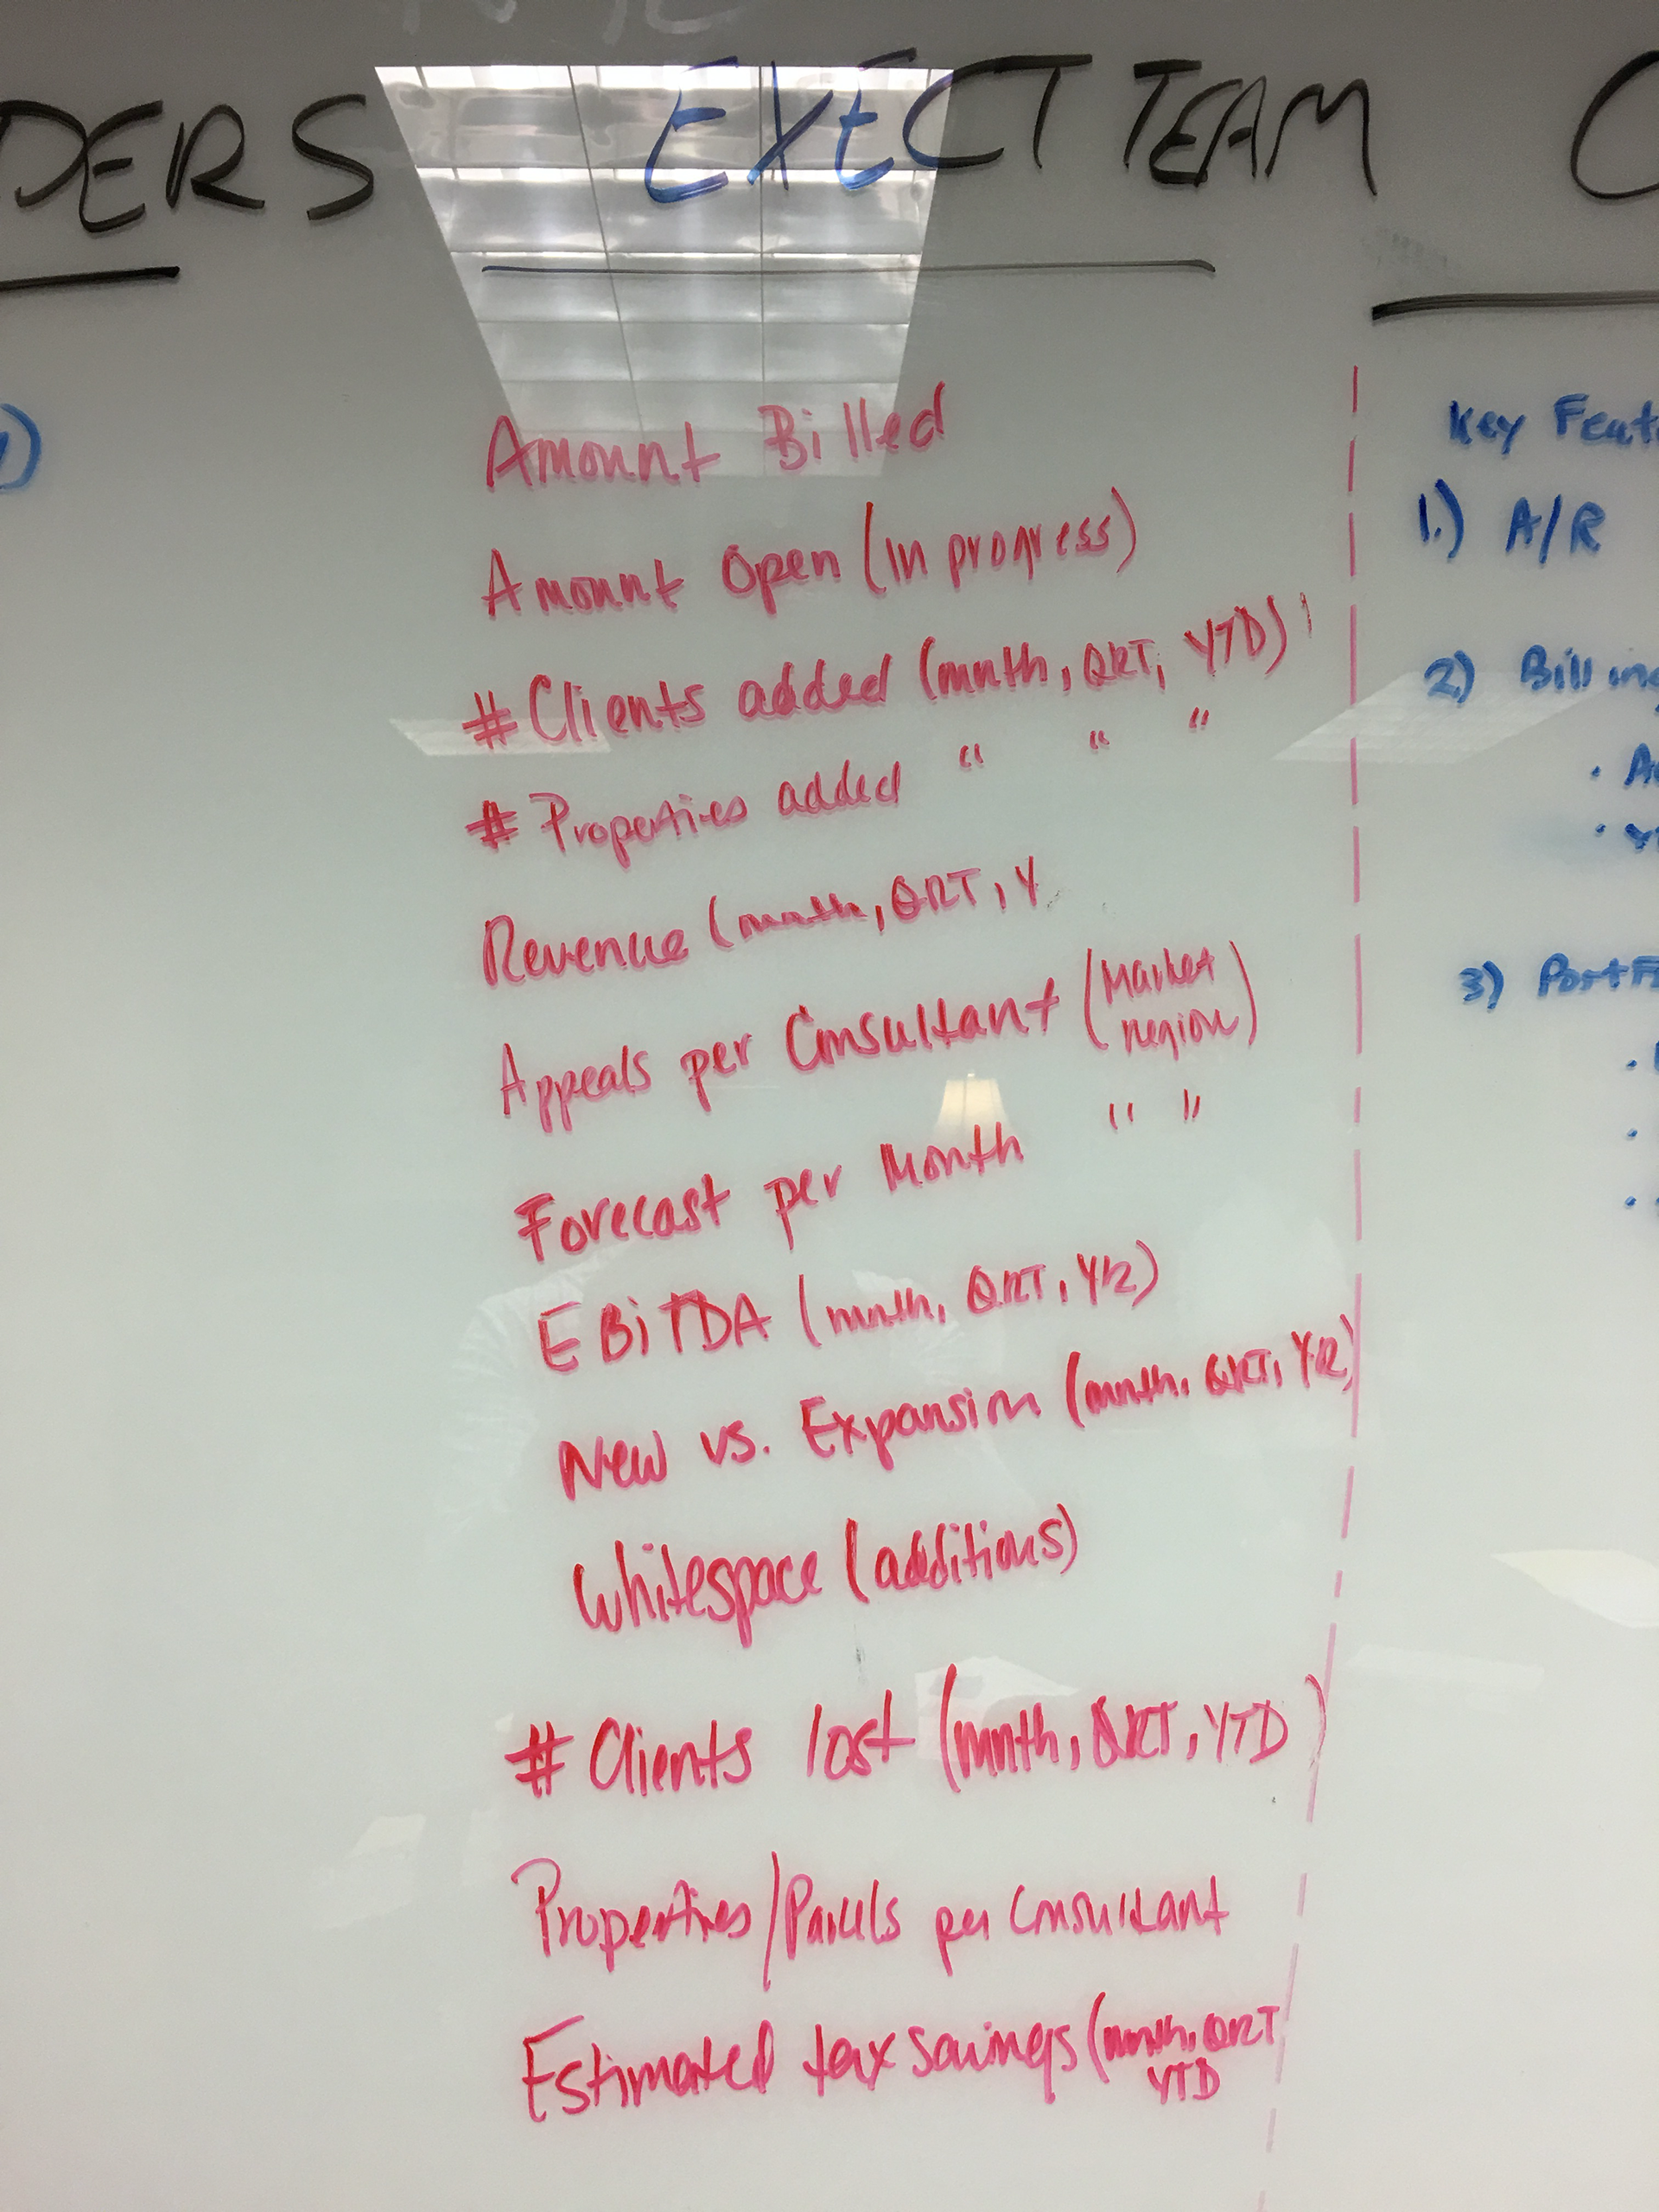 DERS
EXECT TEAM
Amount Billed
Amount Open (in progress)
# Clients added (month, QRT, YTD)
# Properties added " " "
Revenue (month, QRT, Y
Appeals per Consultant (Market
region)
Forecast per Month " "
EBiTDA (month, QRT, YR)
New vs. Expansion (month, QRT, YR)
Whitespace (additions)
# Clients lost (month, QRT, YTD)
Properties/Parcels per Consultant
Estimated tax savings (month, QRT
YTD
Key Feat
1.) A/R
2) Billing
3) PortF